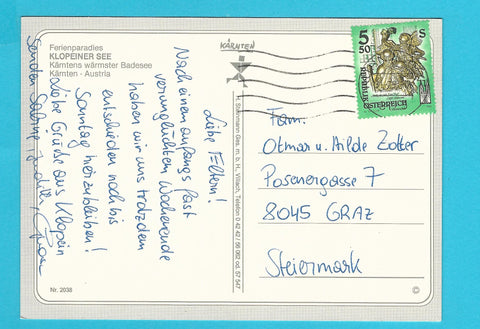 Ferienparadies
KLOPEINER SEE
Kärntens wärmster Badesee
Kärnten - Austria
Liebe Eltern!
Nach einem anfangs fast
verunglückten Wochenende
haben wir uns trotzdem
entschieden noch bis
Sonntag hierzubleiben!
Liebe Grüße aus Klopein
senden Sabine
Nr. 2038
KÄRNTEN
5 50
S
REPUBLIK
ÖSTERREICH
Fam.
Otmar u. Hilde Zotter
Posenergasse 7
8045 GRAZ
Steiermark
©